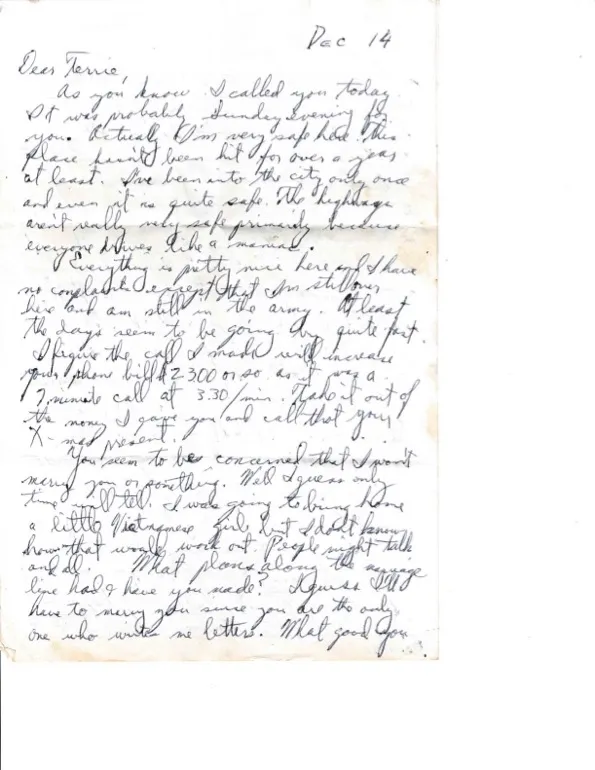 Dec 14
Dear Terrie,
As you know I called you today.
It was probably Sunday evening for
you. Actually I'm very safe here. This
place hasn't been hit for over a year
at least. I've been into the city only once
and even it is quite safe. The highways
aren't really very safe primarily because
everyone drives like a maniac.
Everything is pretty nice here and I have
no complaints except that I'm still over
here and am still in the army. At least
the days seem to be going by quite fast.
I figure the call I made will increase
your phone bill $2300 or so as it was a
7 minute call at 3.30/min. Take it out of
the money I gave you and call that your
X-mas present.
You seem to be concerned that I won't
marry you or something. Well I guess only
time will tell. I was going to bring home
a little Vietnamese girl but I don't know
how that would work out. People might talk
and all. What plans along the marriage
line had & have you made? I guess I'll
have to marry you since you are the only
one who writes me letters. What good you